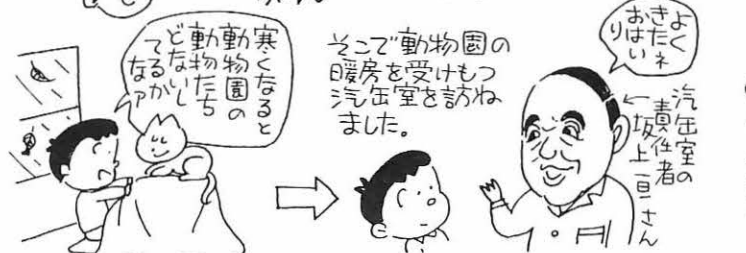 寒くなると
動物園の
動物たち
どないし
てるか
なァ
そこで動物園の
暖房を受けもつ
汽缶室を訪ね
ました。
よく
きたネ
おはい
り
汽缶室の
責任者
坂上亘さん